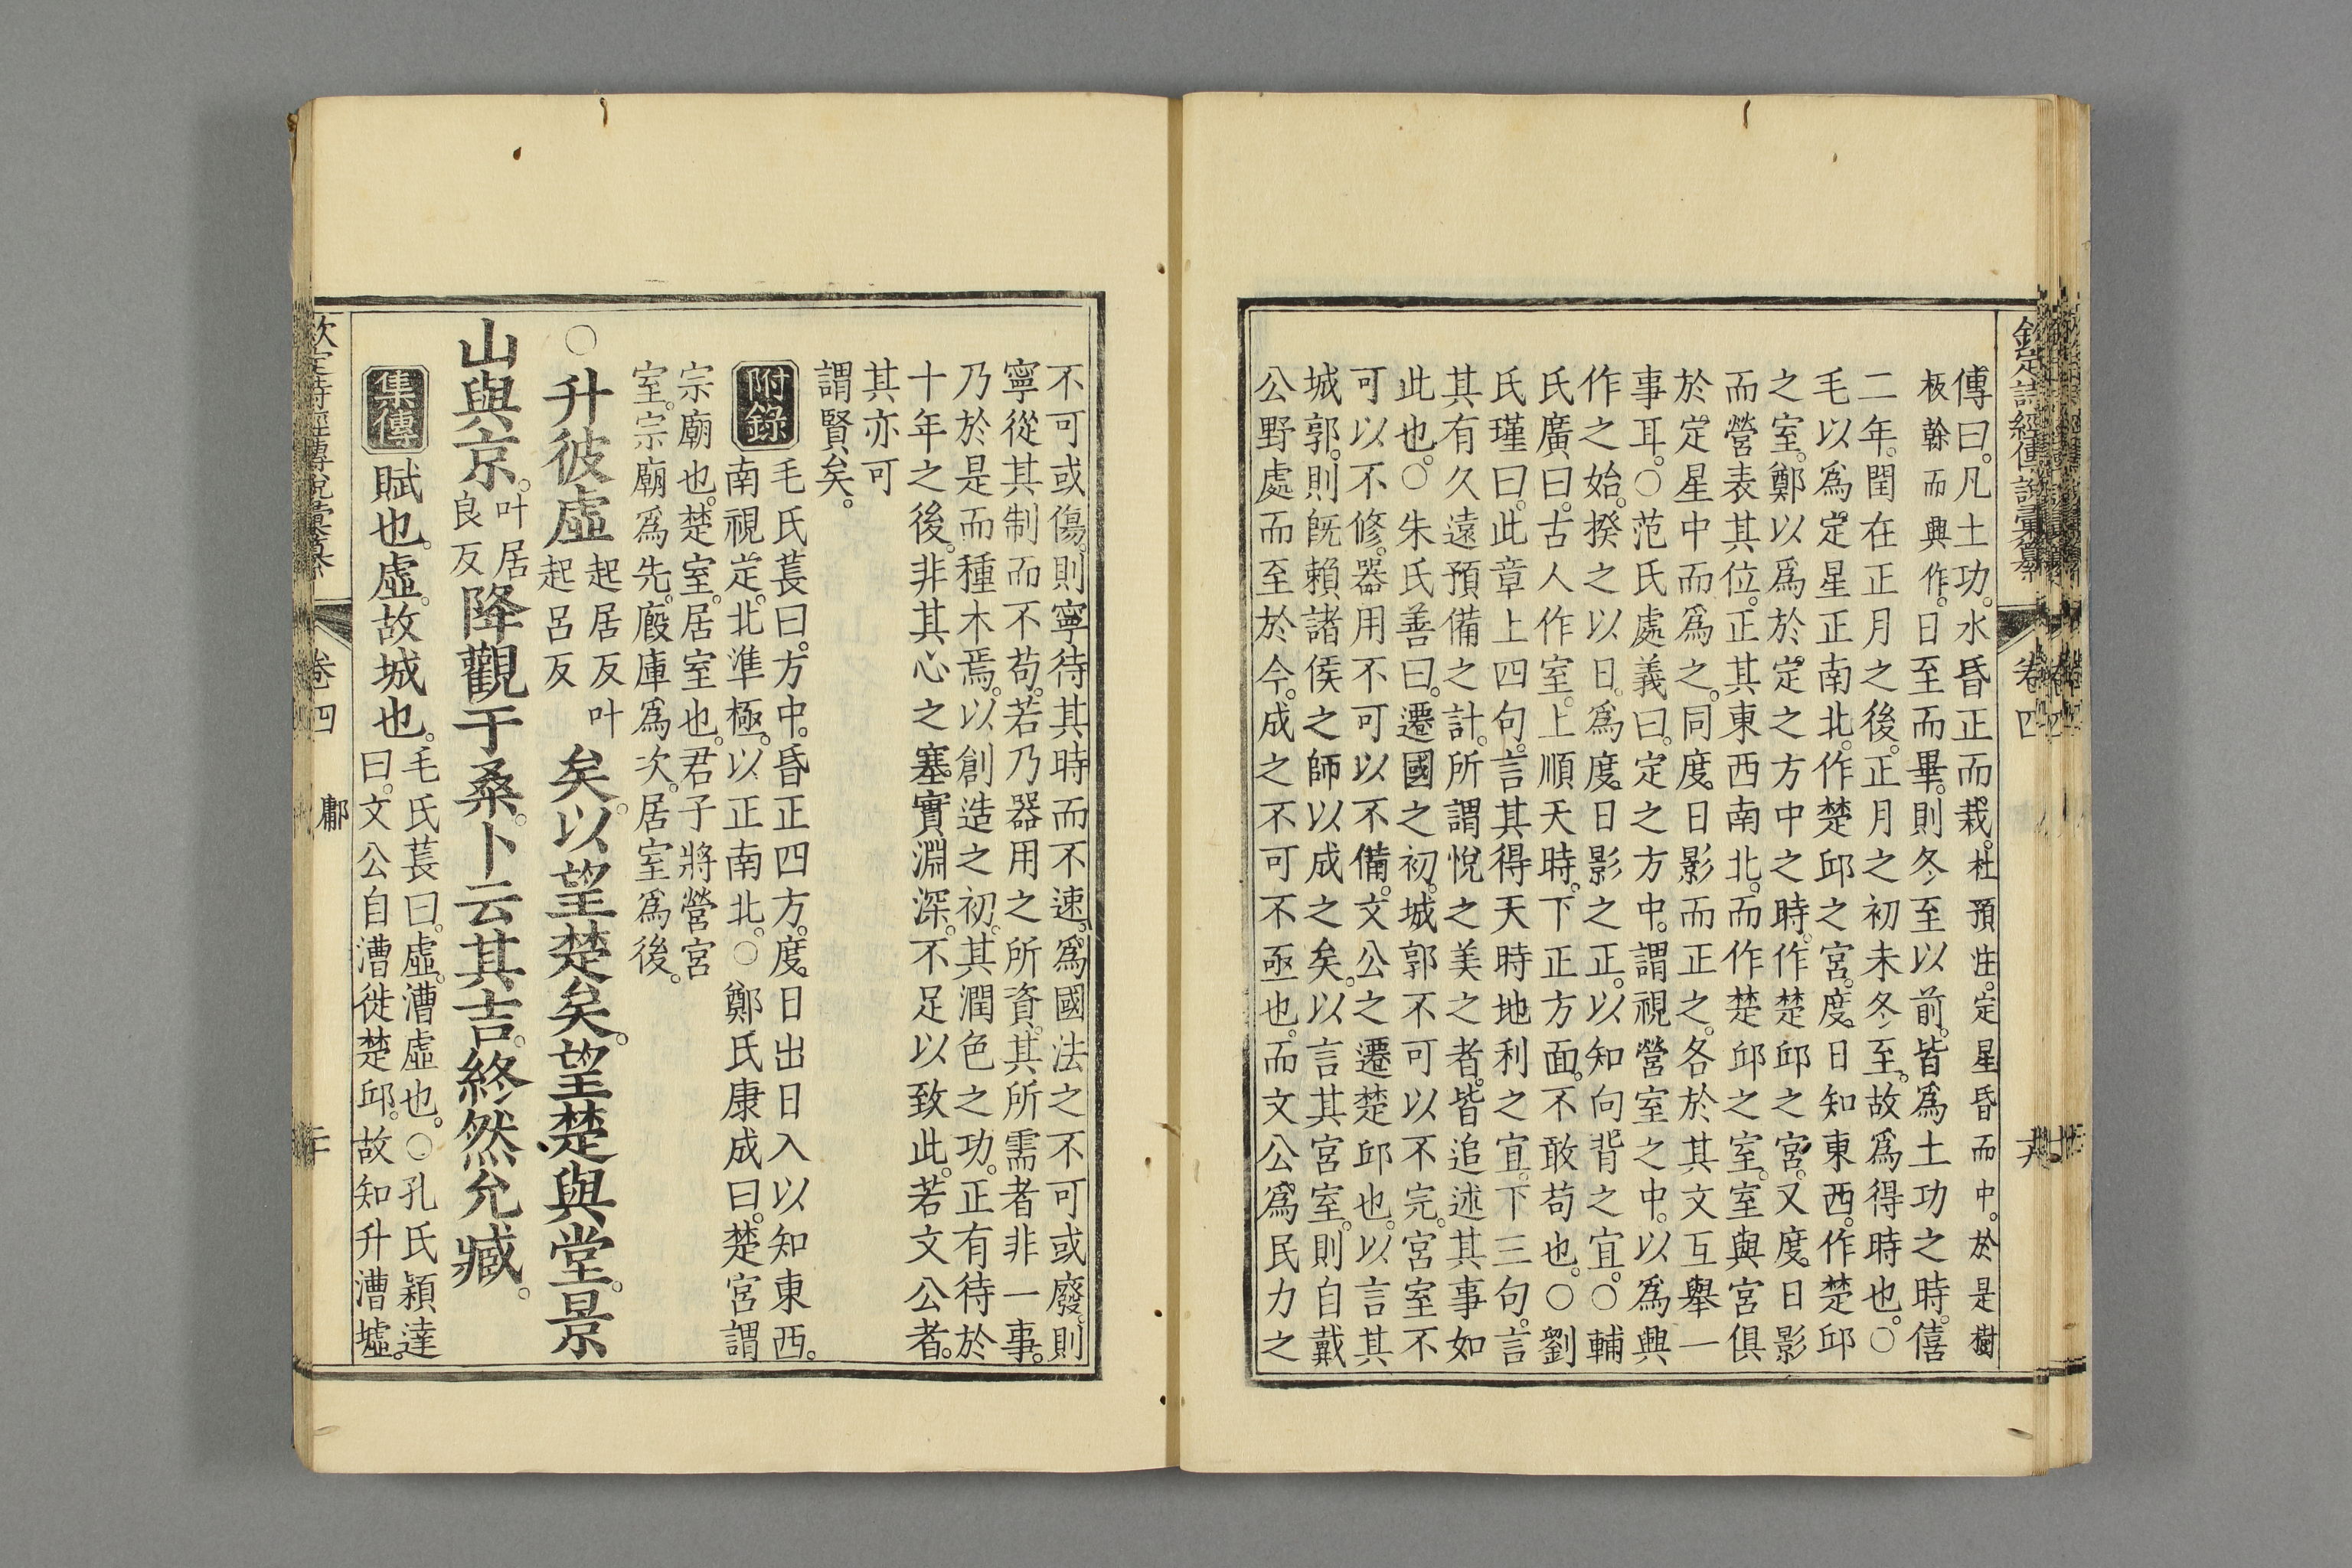 欽定詩經傳說彙纂 卷四
傳曰。凡土功。水昏正而栽。杜預注。定星昏而中。於是樹
板榦而興作。日至而畢。則冬至以前。皆爲土功之時。僖
二年。閏在正月之後。正月之初未冬至。故爲得時也。○
毛以爲。定星正南北。作楚邱之宮。度日知東西。作楚邱
之室。鄭以爲於定之方中之時。作楚邱之宮。又度日影
而營表其位。正其東西南北。而作楚邱之室。室與宮俱
於定星中而爲之。同度日影而正之。各於其文互舉一
事耳。○范氏處義曰。定之方中。謂視營室之中。以爲興
作之始。揆之以日。爲度日影之正。以知向背之宜。○輔
氏廣曰。古人作室。上順天時。下正方面。不敢苟也。○劉
氏瑾曰。此章上四句。言其得天時地利之宜。下三句。言
其有久遠預備之計。所謂悅之美之者。皆追述其事如
此也。○朱氏善曰。遷國之初。城郭不可以不完。宮室不
可以不修。器用不可以不備。文公之遷楚邱也。以言其
城郭。則旣賴諸侯之師以成之矣。以言其宮室。則自戴
公野處而至於今。成之不可不亟也。而文公爲民力之
不可或傷。則寧待其時而不速。爲國法之不可或廢。則
寧從其制而不苟。若乃器用之所資。其所需者非一事。
乃於是而種木焉。以創造之初。其潤色之功。正有待於
十年之後。非其心之塞實淵深。不足以致此。若文公者。
其亦可
謂賢矣。
附錄 毛氏萇曰。方中。昏正四方。度日出日入以知東西。
南視定。北準極。以正南北。○鄭氏康成曰。楚宮謂
宗廟也。楚室。居室也。君子將營宮
室。宗廟爲先。廄庫爲次。居室爲後。
○升彼虛起居反叶起呂反矣。以望楚矣。望楚與堂。景
山與京。叶居良反降觀于桑。卜云其吉。終然允臧。
集傳 賦也。虛。故城也。毛氏萇曰。虛。漕虛也。○孔氏穎達
曰。文公自漕徙楚邱。故知升漕墟。
欽定詩經傳說彙纂 卷四 鄘